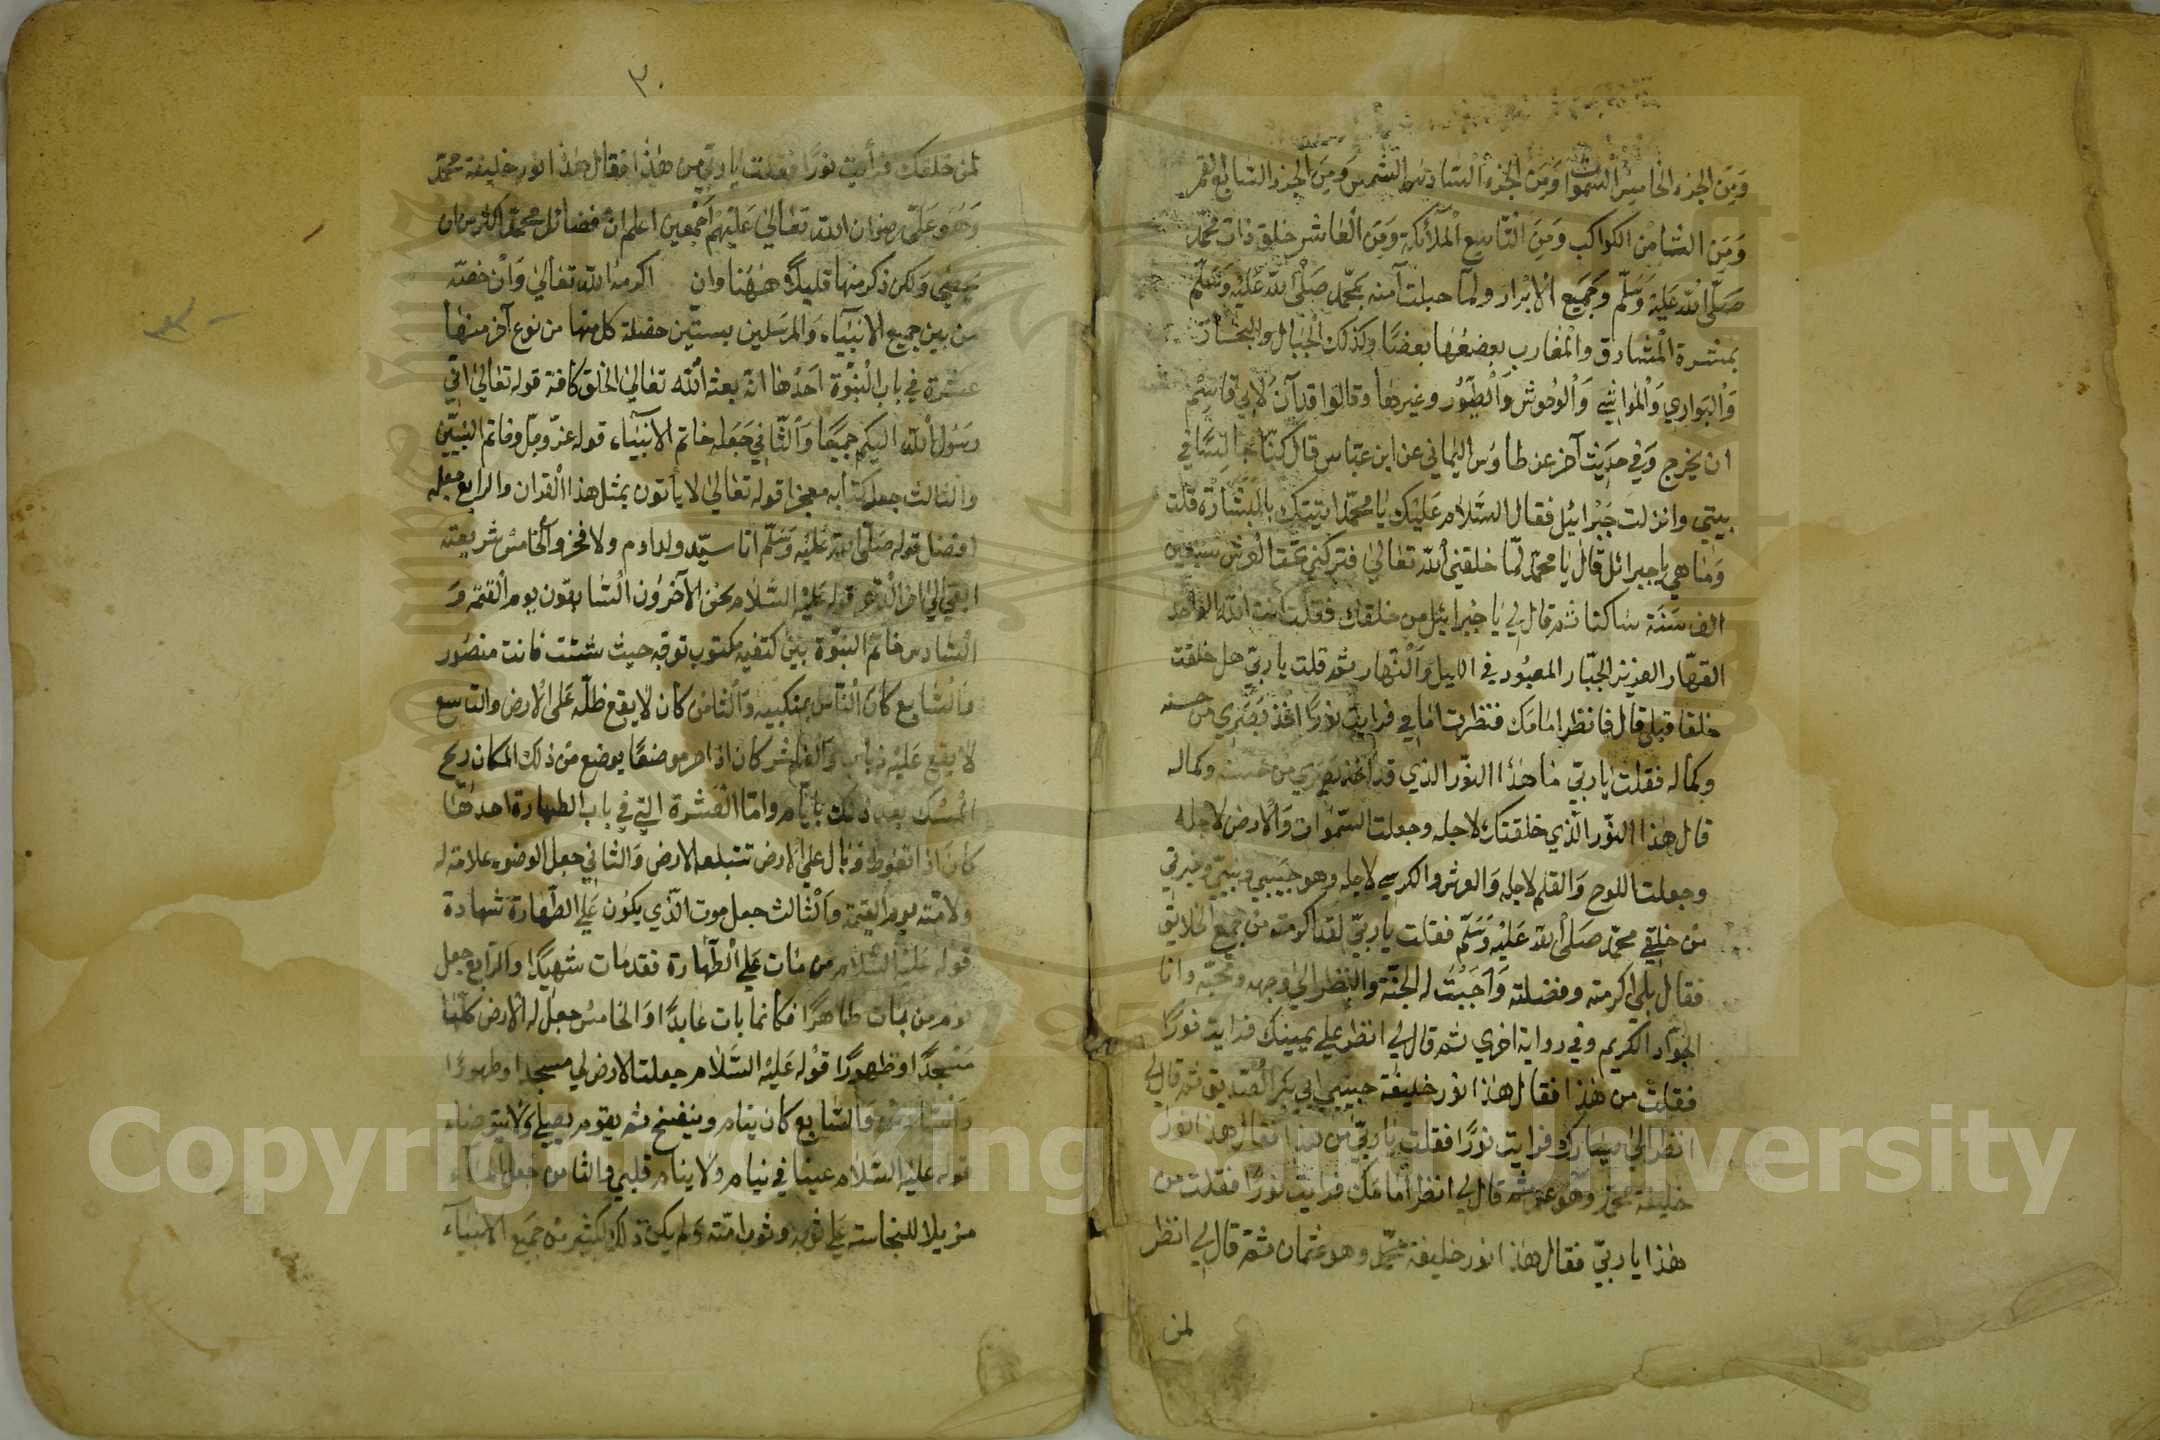 ومن الجزء الخامس السموات ومن الجزء السادس الشمس ومن الجزء السابع القمر
ومن الثامن الكواكب ومن التاسع الملائكة ومن العاشر خلق ذات محمد
صلى الله عليه وسلم وجميع الابرار ولما حبلت آمنه بمحمد صلى الله عليه وسلم
بمشرة المشارق والمغارب بعضها بعضا وكذلك الجبال والبحار
والبواري والمواشي والوحوش والطيور وغيرها وقالوا قد آن لابي قاسم
ان يخرج وفي حديث آخر عن طاوس اليماني عن ابن عباس قال كنا جالسا في
بيتي وانزلت جبرائيل فقال السلام عليك يا محمد اتيتك بالبشارة قلت
وما هي يا جبرائل قال يا محمد لما خلقني الله تعالى فتركني تحت العرش سبعين
الف سنة ساكتا ثم قال لي يا جبرائيل من خلقك فقلت انت الله الواحد
القهار العزيز الجبار المعبود في الليل والنهار ثم قلت يا ربي هل خلقت
خلقا قبلي قال فانظر امامك فنظرت امامي فرايت نورا اخذ بصري من حسنه
وكماله فقلت يا ربي ما هذا النور الذي قد اخذ بصري من حسنه وكماله
قال هذا النور الذي خلقتك لاجله وجعلت السموات والارض لاجله
وجعلت اللوح والقلم لاجله والعرش والكرسي لاجله وهو حبيبي ونبيي وخيرتي
من خلقي محمد صلى الله عليه وسلم فقلت يا ربي لقد اكرمته من جميع الخلايق
فقال بلى اكرمته وفضلته واجبت له الجنة والنظر الى وجهه ومحبه وانا
الجواد الكريم وفي رواية اخرى ثم قال لي انظر على يمينك فرايت نورا
فقلت من هذا فقال هذا نور خليفة حبيبي ابي بكر الصديق ثم قال لي
انظر الى يسارك فرايت نورا فقلت يا ربي من هذا فقال هذا نور
خليفة محمد وهو عمر ثم قال لي انظر امامك فرايت نورا فقلت من
هذا يا ربي فقال هذا نور خليفة محمد وهو عثمان ثم قال لي انظر
لمن
٣٠
لمن خلفك فرأيت نورا فقلت يا ربي من هذا فقال هذا نور خليفة محمد
وهو علي رضوان الله تعالى عليهم أجمعين اعلم ان فضائل محمد اكثر من ان
يحصى ولكن ذكر منها قليلا ههنا وان اكرمه الله تعالى وان خصه
من بين جميع الانبياء والمرسلين بستين خصلة كل منها من نوع آخر منها
عشرة في باب النبوة احدها انه بعثه الله تعالى الخلق كافة قوله تعالى اني
رسول الله اليكم جميعا والثاني جعله خاتم الانبياء قوله عز وجل وخاتم النبيين
والثالث جعل كتابه معجزا قوله تعالى لا يأتون بمثل هذا القران والرابع جعله
افضل قوله صلى الله عليه وسلم انا سيد ولد ادم ولا فخر والخامس شريعته
ابقى الى اخر الدهر قوله عليه السلام نحن الآخرون السابقون يوم القيمة و
السادس خاتم النبوة بين كتفيه مكتوب توجه حيث شئت فانت منصور
والسابع كان الناس بمنكبيه والثامن كان لا يقع ظله على الارض والتاسع
لا يقع عليه ذباب والعاشر كان اذا مر موضعا يوضع من ذلك المكان ريح
المسك بعد ذلك بايام واما العشرة التي في باب الطهارة احدها
كان اذا تغوط وبال على الارض تبتلعه الارض والثاني جعل الوضوء علامة له
ولامته يوم القيمة والثالث جعل موت الذي يكون على الطهارة شهادة
قوله عليه السلام من مات على الطهارة فقد مات شهيدا والرابع جعل
نوم من بات طاهرا فكانما بات عابدا والخامس جعل له الارض كلها
مسجدا وطهورا قوله عليه السلام جعلت الارض لي مسجدا وطهورا
والسادس والسابع كان ينام وينفخ ثم يقوم يصلي ولا يتوضاء
قوله عليه السلام عينا في نيام ولا ينام قلبي والثامن جعل الماء
مزيلا للنجاسة على ثوبه وثوب امته ولم يكن ذلك لكثير من جميع الانبياء
Copyright © King Saud University